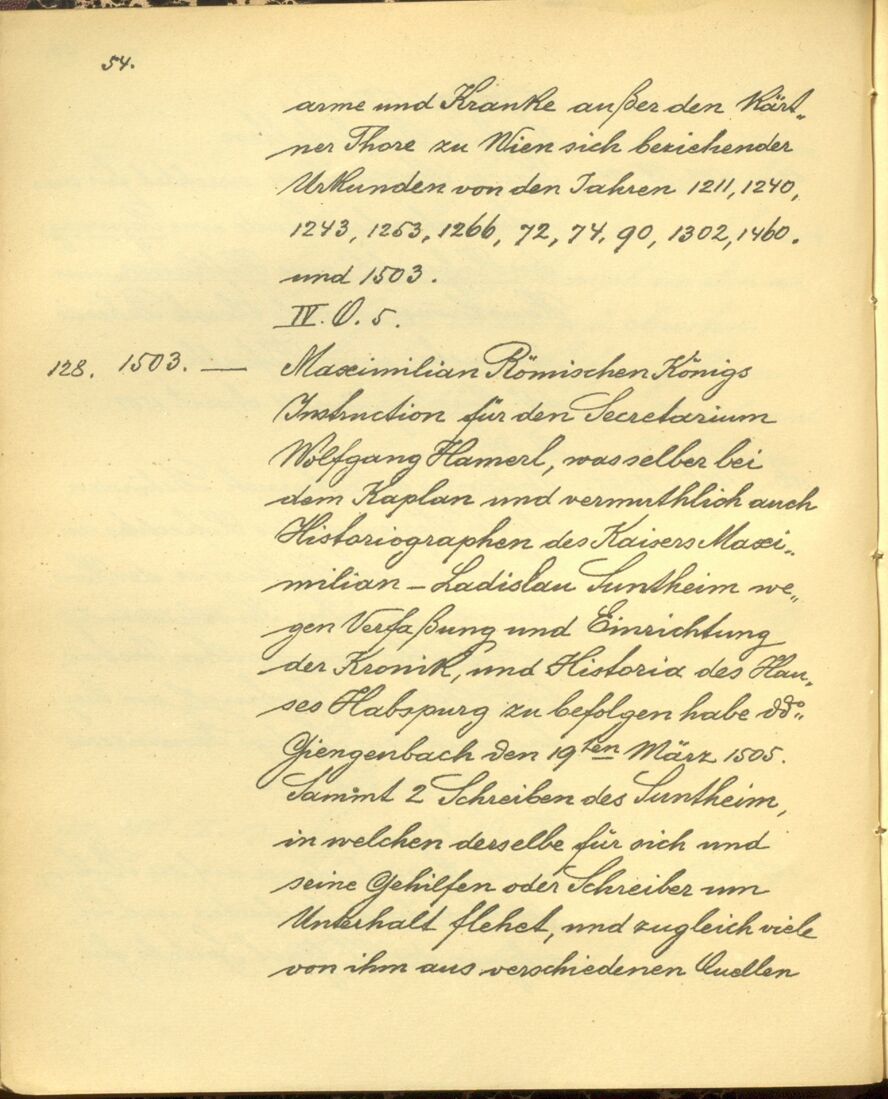 54.
arme und Kranke außer den Kärt„
ner Thore zu Wien sich beziehender
Urkunden von den Jahren 1211, 1240,
1243, 1253, 1266, 72, 74, 90, 1302, 1460.
und 1503.
IV. O. 5.
128. 1503. — Maximilian Römischen Königs
Instruction für den Secretarium
Wolfgang Hamerl, was selber bei
dem Kaplan und vermuthlich auch
Historiographen des Kaisers Maxi„
milian – Ladislau Suntheim we„
gen Verfaßung und Einrichtung
der Kronik, und Historia des Hau„
ses Habspurg zu befolgen habe ddo
Giengenbach den 19ten März 1505.
Sammt 2 Schreiben des Suntheim,
in welchen derselbe für sich und
seine Gehilfen oder Schreiber um
Unterhalt flehet, und zugleich viele
von ihm aus verschiedenen Quellen